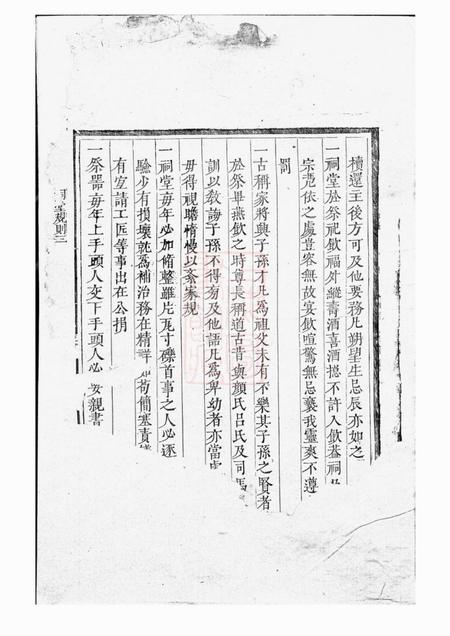 櫝還主後方可及他要務凡朔望生忌辰亦如之
一祠堂於祭祀飲福外縱壽酒喜酒摠不許入飲葢祠
宗兂依之處豈容無故宴飲喧驚無忌褻我靈爽不遵
罰
一古稱家將興子孫才凡為祖父未有不樂其子孫之賢者
於祭畢燕飲之時尊長稱道古昔與顏氏吕氏及司馬
訓以教誨子孫不得旁及他語凡為卑幼者亦當
毋得視聽惰慢以紊家規
一祠堂每年必加脩整雖片瓦寸磉首事之人必逐
驗少有損壞就為補治務在精詳 苟簡塞責
有宜請工匠等事出在公捐
一祭器每年上手頭人交下手頭人必 安親書
規則三